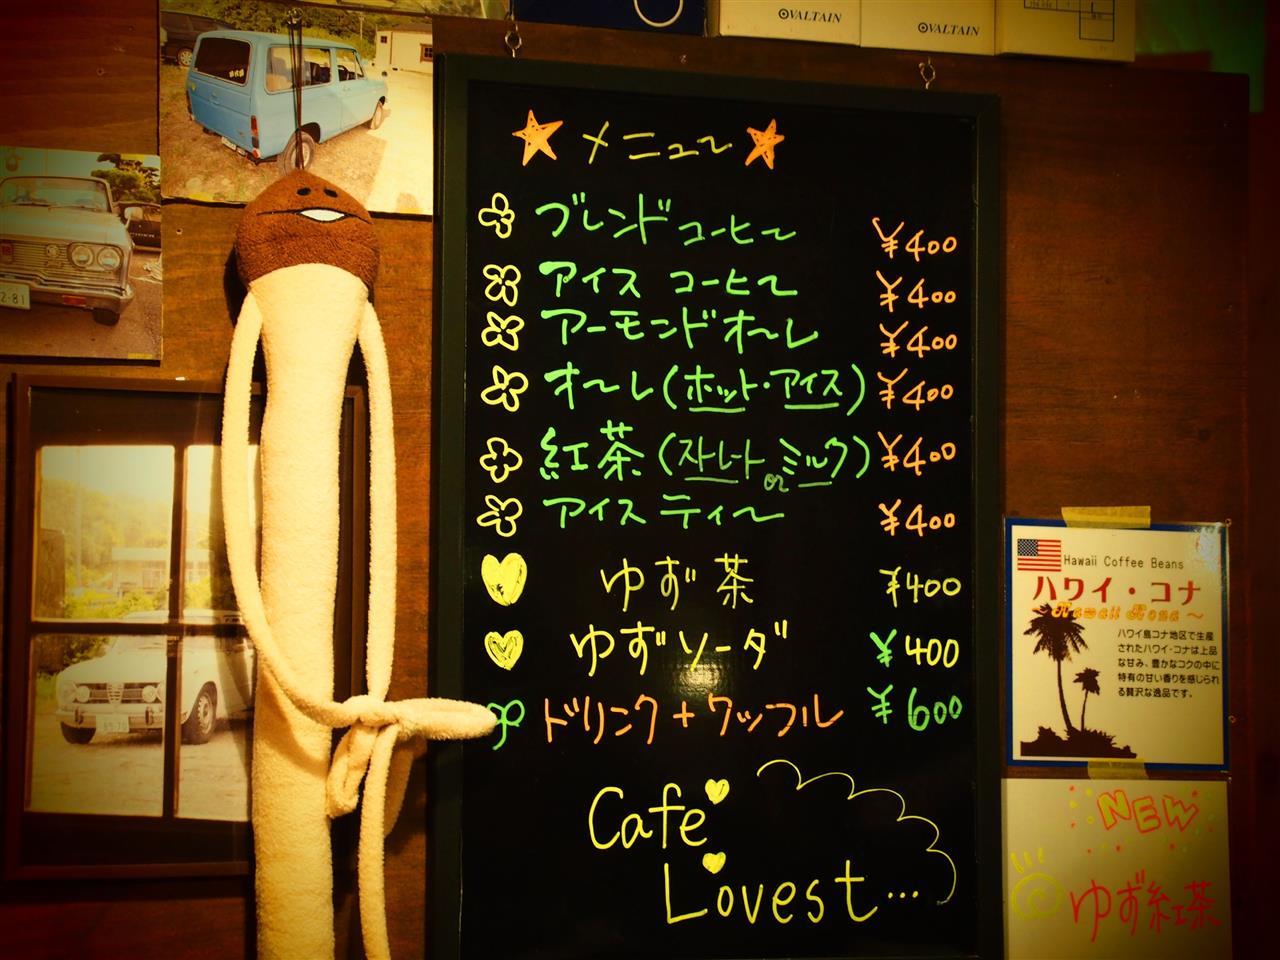 VALTAIN
VALTAIN
メニュー
ブレンドコーヒー ¥400
アイスコーヒー ¥400
アーモンドオーレ ¥400
オーレ(ホット・アイス) ¥400
紅茶(ストレート or ミルク) ¥400
アイスティー ¥400
ゆず茶 ¥400
ゆずソーダ ¥400
ドリンク+ワッフル ¥600
Cafe
Lovest...
Hawaii Coffee Beans
ハワイ・コナ
~Hawaii Kona~
ハワイ島コナ地区で生産
されたハワイ・コナは上品
な甘み、豊かなコクの中に
特有の甘い香りを感じられ
る贅沢な逸品です。
NEW
ゆず紅茶